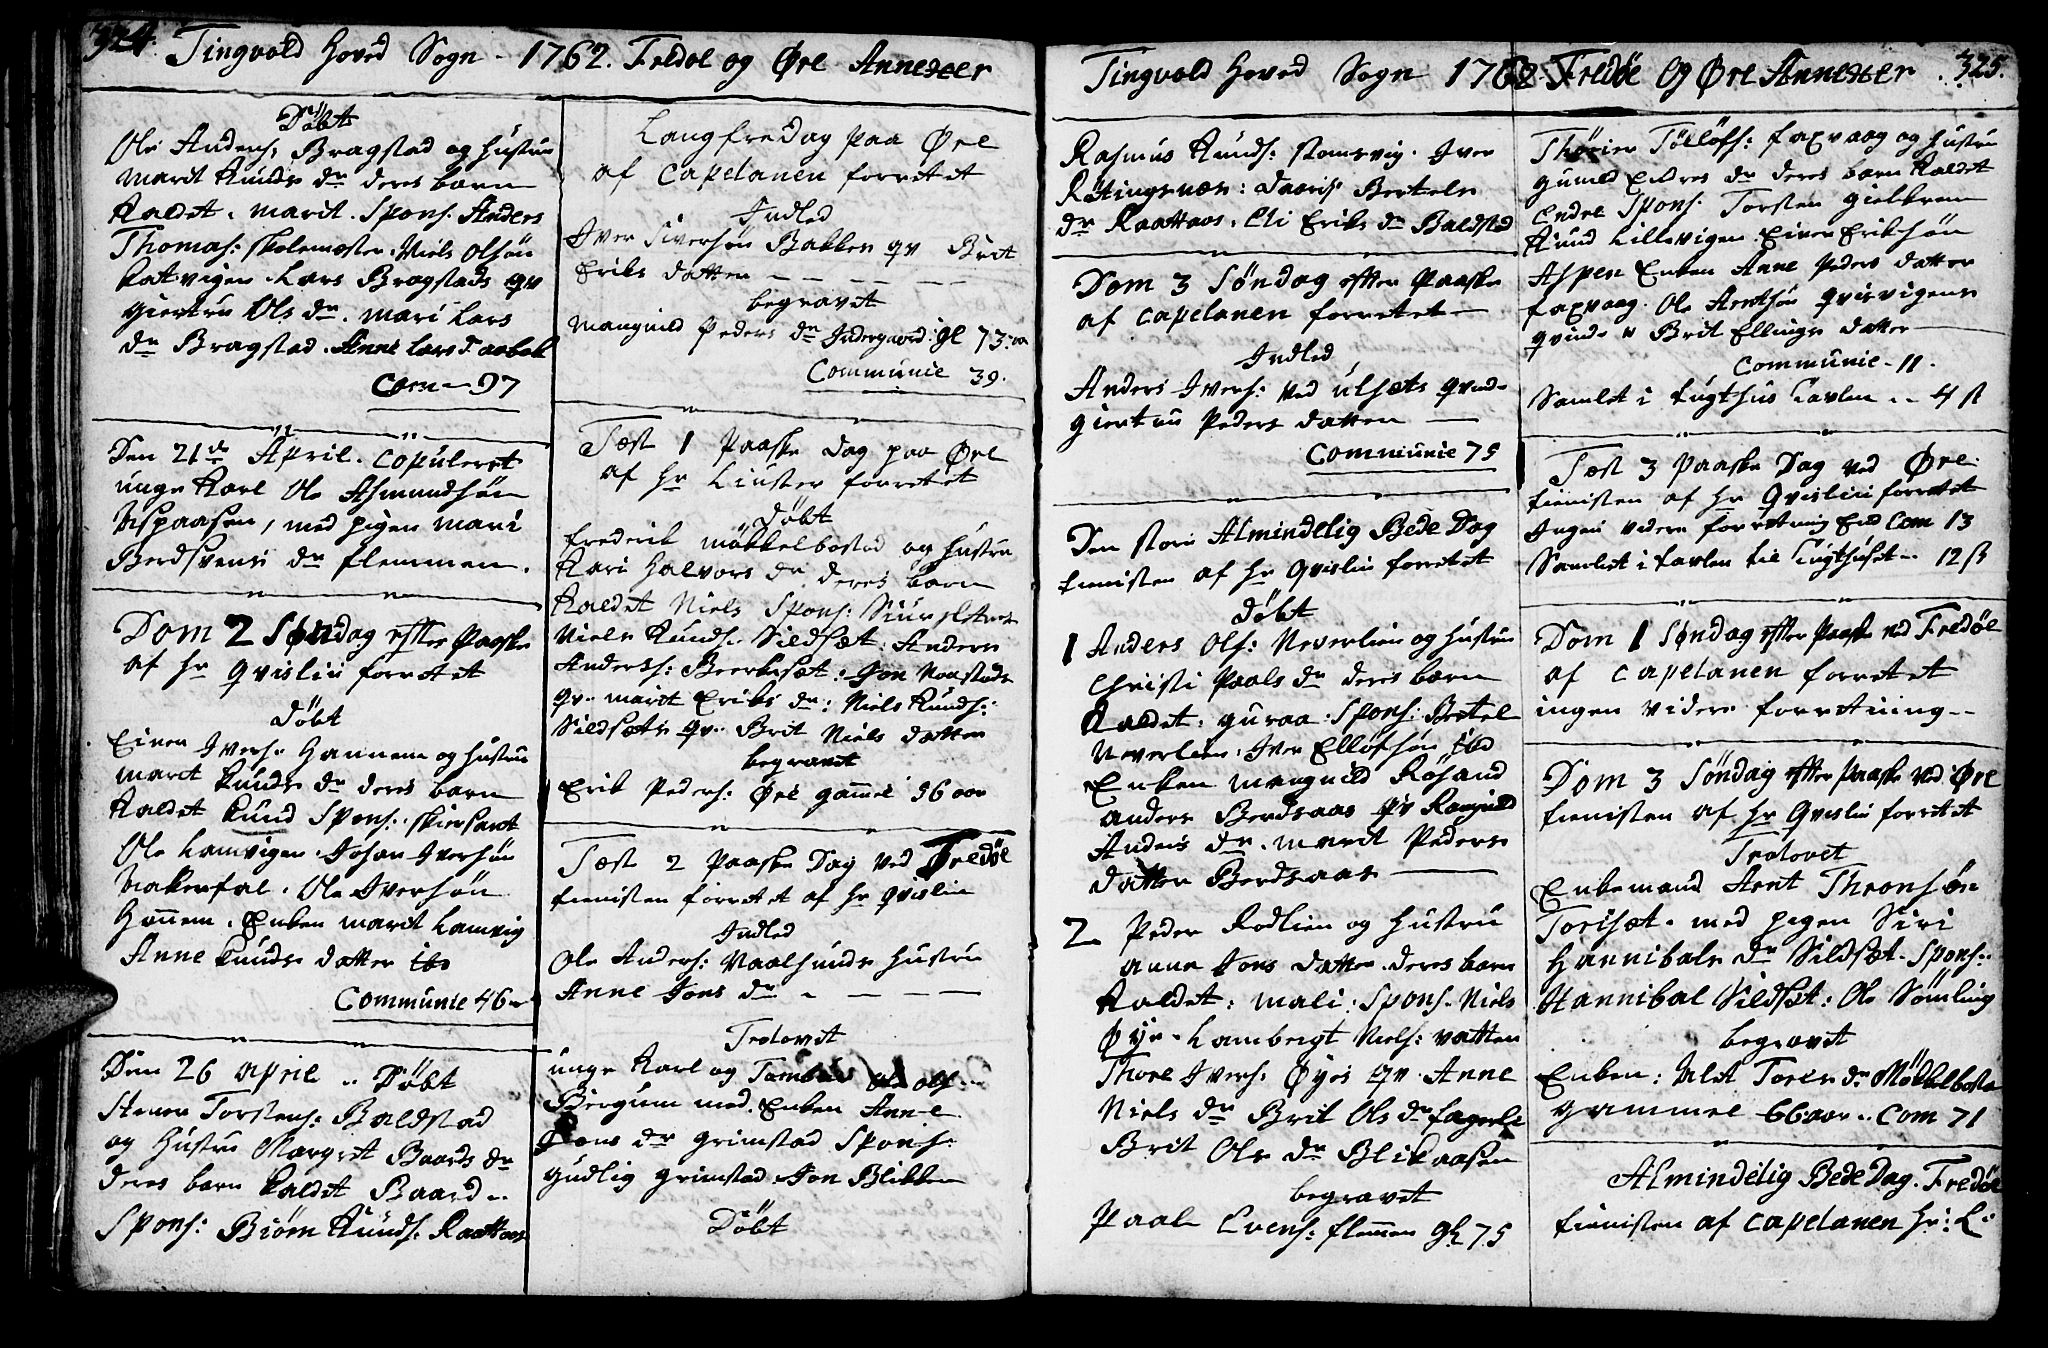 324. Tingvold Hoved Sogn - 1762. Fredøe og Øre Annexer
Døbt
Ole Anders: Bragstad og Hustrue
Marit Knuds dr deres barn
Kaldet. Marit. Spons. Anders
Thomas: skolemester. Niels Olsøn
Katvigen. Lars Bragstads qv
Giertru Ols dr. Mari Lars
dr Bragstad. Anne Lars d. aabak
Com - 97
Den 21de April. Copuleret
unge Karl Ole Asmundsøn
Aspaasen, med pigen Mari
Berdsvens dr Flemmen.
Dom 2 Søndag efter Paaske
af hr Qvislin forretet
Døbt
Einer Ivers: Hannem og Hustrue
Marit Knuds dr deres barn
Kaldet Knud Spons: skiersant
Ole Lamvigen. Johan Iversøn
Nakerfal. Ole Iversøn
Hannem. Enken Marit Lamvig
Anne Knuds datter ibd
Communic 46
Den 26 April .. Døbt
Stener Torstens: Baldstad
og Hustru Margret Baards dr
deres barn kaldet Baard..
Spons: Biørn Knuds: Raattaas
Langfredag paa Øre
af Capelanen forretet
Indled
Iver Siversøn Bakken qv Brit
Eriks datter
begravet
Mangnild Peders dr Indergaard: gl 73 aar
Communic 39.
Fest 1 Paaske Dag paa Øre
af hr Liuster forretet
Døbt
Frederik Møkkelbostad og Hustru
Kari Halvors dr deres barn
Kaldet Niels Spons: Siur
Niels Knuds. Sildset. Anders
Anders: Beerkeset: Jon Naastads
qv. Marit Eriks dr: Niels Knuds:
Sildsets qv. Brit Niels datter
begravet
Erik Peders: Øre gamel 56 aar
Fest 2 Paaske Dag ved Fredøe
tienisten forretet af hr Qvislin
Indled
Ole Anders: Vaalsunds Hustru
Anne Jons dr
Trolovet
unge Karl og Tambur Ole Ols:
Biergum med. Enken Anne
Jons dr Grimstad Spons:
Gudlig Grimstad. Jon Blikken
Døbt
Tingvold Hoved Sogn 1762 Fredøe og Øre Annexer. 325.
Rasmus Knuds: Stomsvig. Iver
Røtingsnæs: Daaris Bertels
dr Raattaas. Eli Eriks dr Baldstad
Dom 3 Søndag efter Paaske
af Capelanen forretet
Indled
Anders Ivers: ved Ulsets qvinde
Giertru Peders datter
Communic 75
Den store Almindelig Bede Dag
tienisten af hr Qvislin forretet
Døbt
1 Anders Ols: Neverlien og Hustru
Christi Paals dr deres barn
Kaldet: Guraa: Spons: Bertel
Neverlien. Iver Ellofsøn ibd
Enken Mangnild Røsand
Anders Berdsaas qv Rangnild
Anders dr. Marit Peders
datter Berdsaas
2 Peder Rodlien og Hustru
Anne Jons datter. deres barn
Kaldet: Mali: Spons. Niels
Øye. Lambregt Niels: Vatten
Thore Ivers: Øyes qv. Anne
Niels dr Brit Ols dr Fagerli
Brit Ols dr Blikaasen
begravet
Paal Evens: Flemmen gl 75
Thorier Tolløfs: Faxvaag og Hustru
Gunild Endres dr deres barn kaldet
Endre Spons. Torsten Gielbren
Knud Lillevigen. Einer Eriksøn
Aspen Enken Anne Peders datter
Faxvaag. Ole Arntsøn Qvisvigens
qvinde Brit Ellings datter
Communic - 11.
Samlet i tugthus tavlen .. 4 ß
Fest 3 Paaske Dag ved Øre.
tienisten af hr Qvislin forretet
Ingen videre forretning End Com 13
Samlet i tavlen til Tugthuset .. 12 ß
Dom 1 Søndag efter Paaske ved Fredøe
af Capelanen forretet
ingen videre forretning
Dom 3 Søndag efter Paaske ved Øre
tienisten af hr Qvislin forretet
Trolovet
Enkemand Arnt Thronsøn
Toriset. med pigen Siri
Hannibals dr Sildset. Spons:
Hannibal Sildset: Ole Sømling
begravet
Enken: Alet Tores dr Møkkelbosta
Gammel 66 aar .. Com 71
Almindelig Bede Dag. Fredøe
tienisten af Capelanen Hr: L: